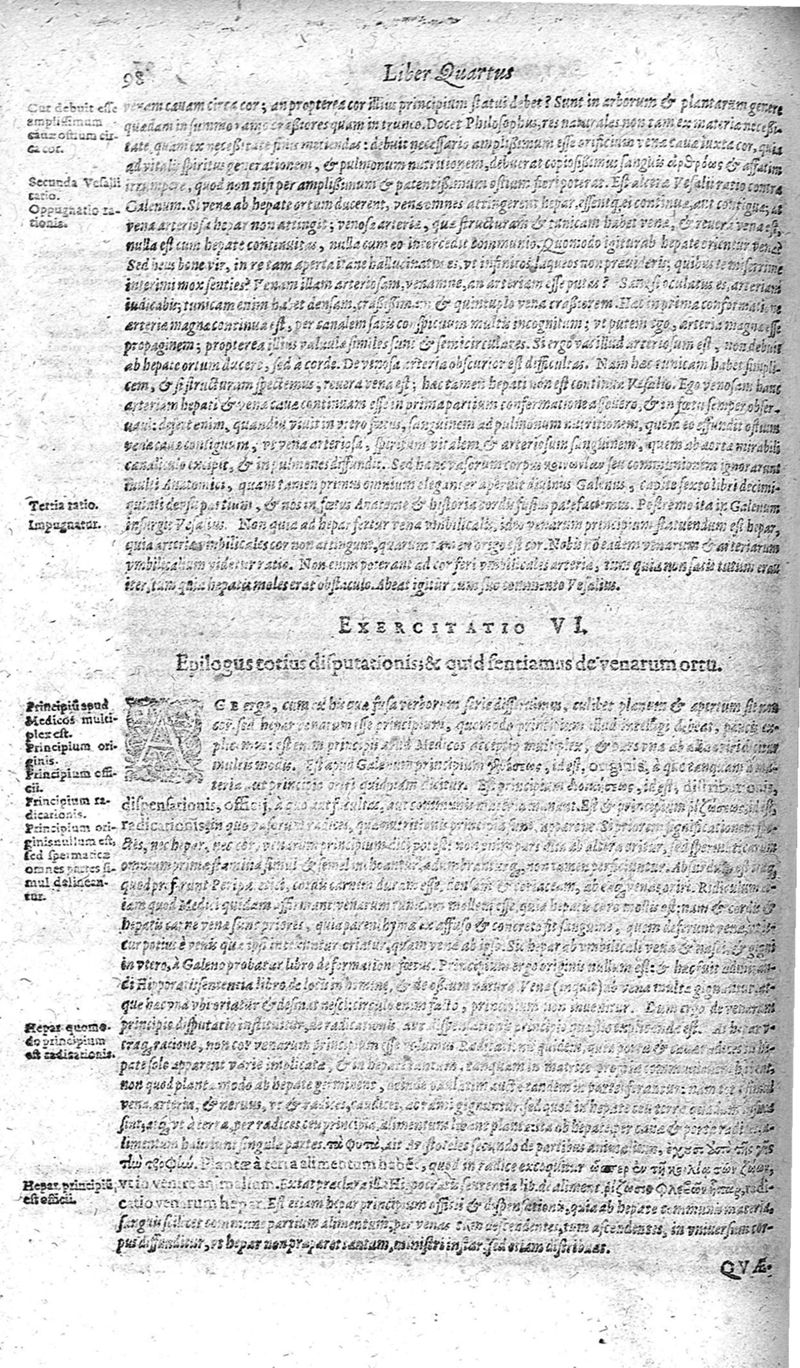 98
Liber Quartus
Cur debuit esse
amplissimum
cauæ ostium cir-
ca cor.
venam cauam circa cor; an propterea cor illius principium statui debet? Sunt in arborum & plantarum genere
quædam in summo ramo crassiores quam in trunco. Docet Philosophus, res naturales non tam ex materiæ necessi-
tate, quam ex necessitate finis metiendas: debuit necessario amplissimum esse orificium venæ cauæ iuxta cor, quia
ad vitalis spiritus generationem, & pulmonum nutritionem, debuerat copiosissimus sanguis & affatim
Secunda Vesalij
ratio.
irrumpere, quod non nisi per amplissimum & patentissimum ostium fieri poterat. Est altera Vesalii ratio contra
Oppugnatio ra-
tionis.
Galenum. Si venæ ab hepate ortum ducerent, venæ omnes attingerent hepar, essent ei continuæ, aut contiguæ; at
vena arteriosa hepar non attingit; venosa arteria, quæ structuram & tunicam habet venæ, & reuera vena est,
nulla est cum hepate continuitas, nulla cum eo intercedit communio. Quomodo igitur ab hepate orientur venæ?
Sed heus bone vir, in re tam aperta itane hallucinatus es, vt infinitos laqueos non præuideris; quibus te miserrime
interimi mox senties? Venam illam arteriosam, venamne, an arteriam esse putas? Sane si oculatus es, arteriam
iudicabis; tunicam enim habet densam, crassissimam & quintuplo vena crassiorem. Hæc in prima conformatione
arteriæ magnæ continua est, per canalem satis conspicuum multis incognitum; vt putem ego, arteriæ magnæ esse
propaginem; propterea illius valuulæ similes sunt & semicirculares. Si ergo vas illud arteriosum est, non debuit
ab hepate ortum ducere, sed à corde. De venosa arteria obscurior est difficultas. Nam hæc tunicam habet simpli-
cem, & si structuram spectemus, reuera vena est; hæc tamen hepati non est continua Vesalio. Ego venosam hanc
arteriam hepati & venæ cauæ continuam esse in prima partium conformatione assevero, & in fœtu semper obser-
uaui: defert enim, quandiu viuit in vtero fœtus, sanguinem ad pulmonum nutritionem, quem eo effundit ostium
venæ cauæ contiguum, vt vena arteriosa, spiritum vitalem & arteriosum sanguinem, quem ab aorta mirabili
canaliculo excipit, & in pulmones diffundit. Sed hanc vasorum seu communionem ignorarunt
multi Anatomici, quam tamen primus omnium eleganter aperuit diuinus Galenus, capite sexto libri decimi-
Tertia ratio.
quinti de vsu partium, & nos in fœtus Anatome & historia cordis fusius patefaciemus. Postremo ita in Galenum
Impugnatur.
insurgit Vesalius. Non quia ad hepar fertur vena vmbilicalis, ideo venarum principium statuendum est hepar,
quia arteriæ vmbilicales cor non attingunt, quarum tamen origo est cor. Nobis eadem venarum & arteriarum
vmbilicalium videtur ratio. Non enim poterant ad cor ferri vmbilicales arteriæ, tum quia non satis tutum erat
iter, tum quia hepatis moles erat obstaculo. Abeat igitur cum suo commento Vesalius.
EXERCITATIO VI.
Epilogus totius disputationis; & quid sentiamus de venarum ortu.
Principiū apud
Medicos multi-
plex est.
Principium ori-
ginis.
Principium offi-
cii.
Principium ra-
dicationis.
Principium ori-
ginis nullum est,
sed spermaticæ
omnes partes si-
mul delinean-
tur.
AGE ergo, cum ex his quæ fusa verborum serie disseruimus, cuilibet planum & apertum sit non
cor, sed hepar venarum esse principium, quomodo principium illud intelligi debeat, paucis ex-
plicemus: est enim principii apud Medicos acceptio multiplex, & pars vna ab alia oriri dicitur
multis modis. Est apud Galenum principium id est, originis, à quo tanquam à ma-
teria aut principio oriri quidpiam dicitur. Est principium id est, distributionis,
dispensationis, officij, à quo aut facultas, aut communis materia manant. Est & principium id est,
radicationis, in quo vasorum radices, quæ nutritionis principia sunt, apparent. Si priorem significationem
nec hepar, nec cor, venarum principium dici potest: non enim pars vna ab altera oritur, sed spermaticarum
omnium prima stamina simul & semel inchoantur, adumbrantur, non tamen perficiuntur. Absurdum est
quod ferunt Peripatetici, cordis carnem duram esse, densam & coriaceam, ab eaque venas oriri. Ridiculum et-
iam quod Medici quidam affirmant venarum tunicam mollem esse, quia hepatis caro mollis est: nam & cordis &
hepatis carne venæ sunt priores, quia parenchyma ex affuso & concreto fit sanguine, quem deferunt venæ,
cur potius è venis quæ ipsi intexuntur oriatur, quam venæ ab ipso. Sic hepar ab vmbilicali vena & nasci, & gigni
in vtero, à Galeno probatur libro de formatione fœtus. Principium ergo originis nullum est: & hæc fuit
di Hippocratis sententia libro de locis in homine, & de ossium natura. Venæ (inquit) ab vena multæ gignantur, at-
que hæc vna vbi oriatur & desinat nescio: circulo enim facto, principium non inuenitur. Dum ergo de venarum
Hepar quomo-
do principium
est radicationis.
principio disputatio instituitur, de radicationis, aut dispensationis principio quæstio intelligenda est. At hepar v-
traque ratione, non cor venarum principium esse volumus. Radicationis quidem, quia portæ & cauæ radices in he-
pate solo apparent varie implicatæ, & in hepate tantum, tanquam in matrice
non quod plantæ modo ab hepate germinent, deinde paulatim auctæ tandem in partes ferantur: nam simul
vena, arteria, & neruus, vt & radices, caudices, ac rami gignuntur, sed quod in hepate ceu terra quadam
sint, atque vt à terra, per radices ceu principia, alimentum hauriant plantæ; ita ab hepate, per cauæ & portæ radices
alimentum hauriunt singulæ partes. τὰ φυτὰ, ait Aristoteles secundo de partibus animalium, ἔχει ἐκ τῆς γῆς
τὴν τροφὴν, Plantæ à terra alimentum habent, quod in radice excoquitur ὥσπερ ἐν τῇ κοιλίᾳ τῶν ζώων,
Hepar principiū
est officii.
vt in ventre animalium. Extat præclara illa Hippocratis sententia lib. de aliment. ῥίζωσις φλεβῶν ἧπαρ, radi-
catio venarum hepar. Est etiam hepar principium officii & dispensationis, quia ab hepate communis materia,
sanguis scilicet commune partium alimentum, per venas tum descendentes, tum ascendentes, in vniuersum cor-
pus diffunditur, vt hepar non præparet tantum, ministri instar, sed etiam distribuat.
QVÆ